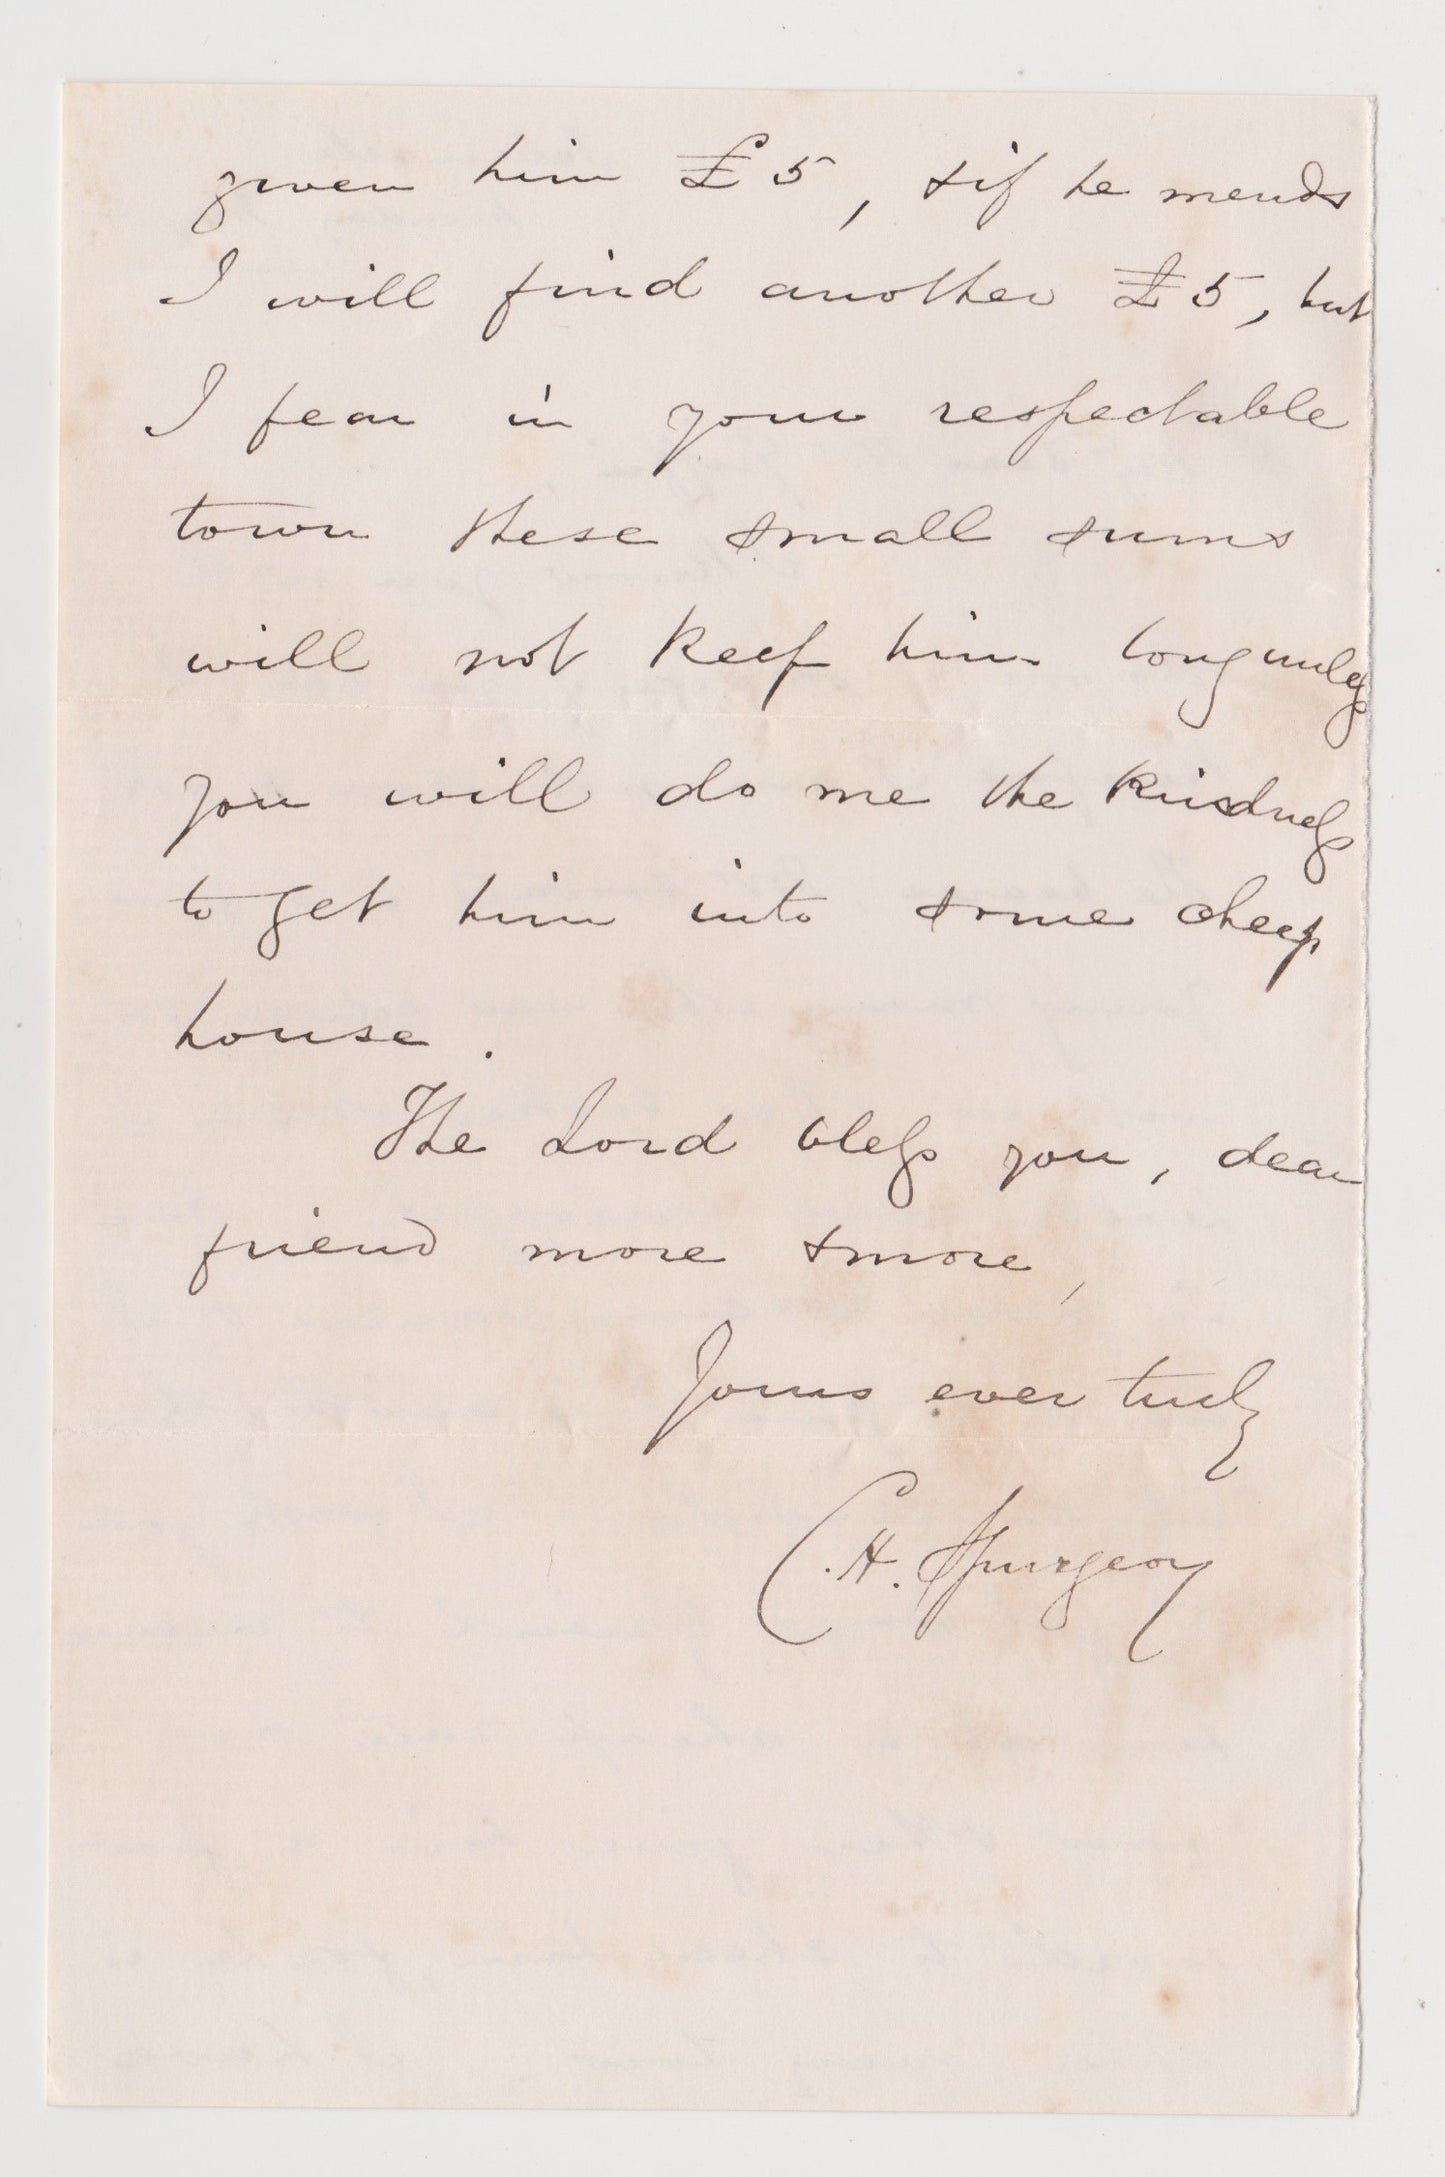 given him £5, & if he mends
I will find another £5, but
I fear in your respectable
town these small sums
will not keep him long unless
you will do me the kindness
to get him into some cheap
house.
The Lord bless you, dear
friend more & more,
Yours ever truly
C. H. Spurgeon